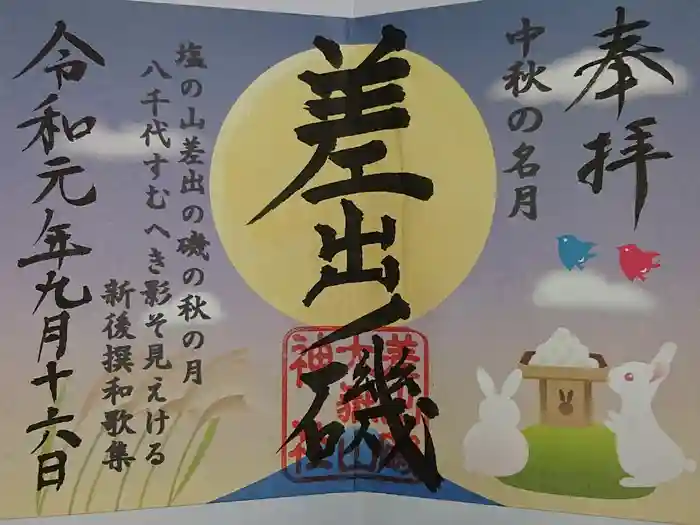 奉拝
中秋の名月
差出ノ磯
塩の山差出の磯の秋の月
八千代すむへき影そ見えける
新後撰和歌集
令和元年九月十六日
差出磯
大嶽山
神社